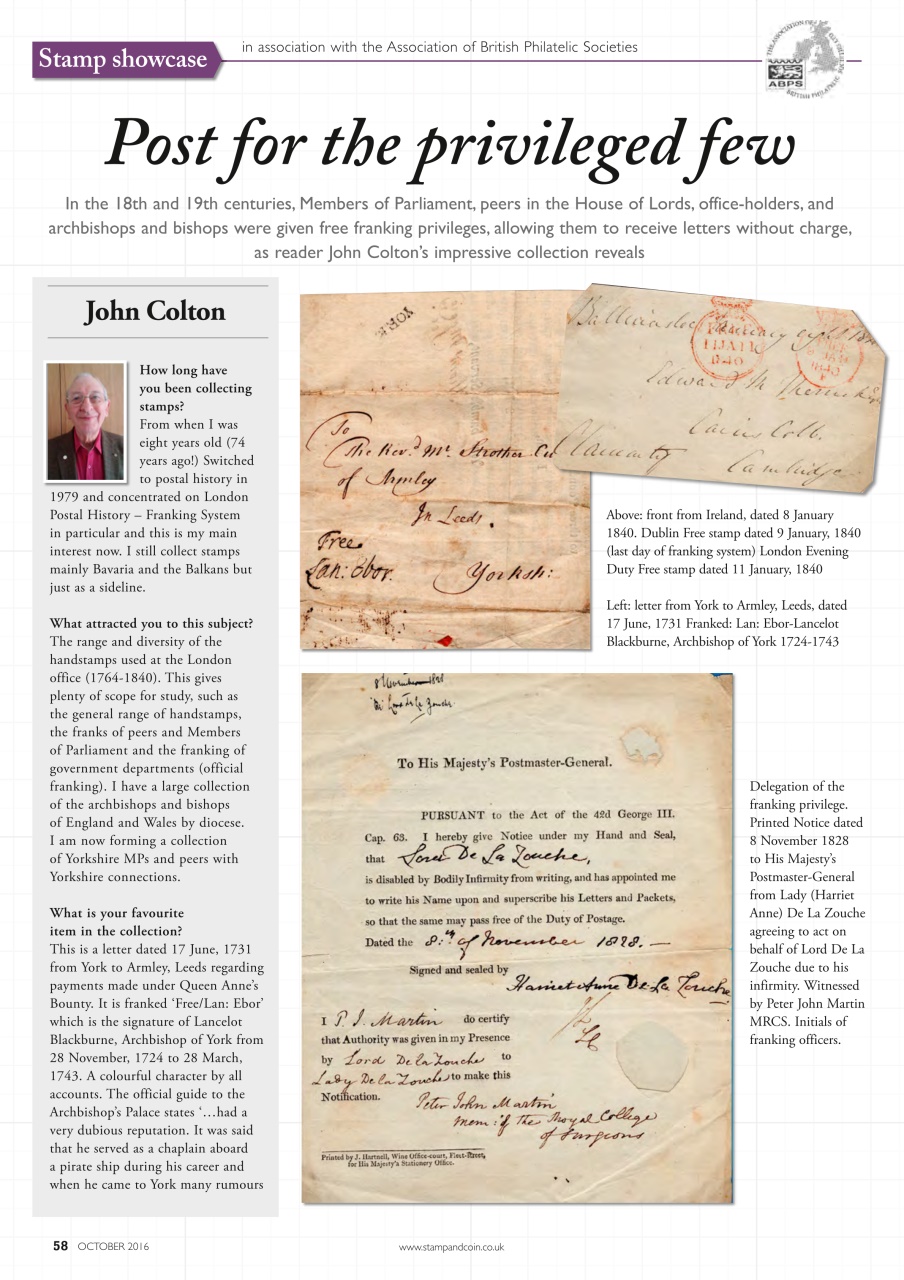 Stamp showcase
in association with the Association of British Philatelic Societies
THE ASSOCIATION OF
BRITISH PHILATELIC SOCIETIES
ABPS
Post for the privileged few
In the 18th and 19th centuries, Members of Parliament, peers in the House of Lords, office-holders, and
archbishops and bishops were given free franking privileges, allowing them to receive letters without charge,
as reader John Colton’s impressive collection reveals
John Colton
How long have
you been collecting
stamps?
From when I was
eight years old (74
years ago!) Switched
to postal history in
1979 and concentrated on London
Postal History – Franking System
in particular and this is my main
interest now. I still collect stamps
mainly Bavaria and the Balkans but
just as a sideline.
What attracted you to this subject?
The range and diversity of the
handstamps used at the London
office (1764-1840). This gives
plenty of scope for study, such as
the general range of handstamps,
the franks of peers and Members
of Parliament and the franking of
government departments (official
franking). I have a large collection
of the archbishops and bishops
of England and Wales by diocese.
I am now forming a collection
of Yorkshire MPs and peers with
Yorkshire connections.
What is your favourite
item in the collection?
This is a letter dated 17 June, 1731
from York to Armley, Leeds regarding
payments made under Queen Anne’s
Bounty. It is franked ‘Free/Lan: Ebor’
which is the signature of Lancelot
Blackburne, Archbishop of York from
28 November, 1724 to 28 March,
1743. A colourful character by all
accounts. The official guide to the
Archbishop’s Palace states ‘…had a
very dubious reputation. It was said
that he served as a chaplain aboard
a pirate ship during his career and
when he came to York many rumours
YORK
To
The Revd. Mr. Strother
of Armley
In Leeds.
Free
Lan: Ebor.
Yorksh:
1840
1840
Edward
Caius Coll.
Cambridge
Above: front from Ireland, dated 8 January
1840. Dublin Free stamp dated 9 January, 1840
(last day of franking system) London Evening
Duty Free stamp dated 11 January, 1840
Left: letter from York to Armley, Leeds, dated
17 June, 1731 Franked: Lan: Ebor-Lancelot
Blackburne, Archbishop of York 1724-1743
To His Majesty’s Postmaster-General.
PURSUANT to the Act of the 42d George III.
Cap. 63. I hereby give Notice under my Hand and Seal,
that Lord De La Zouche,
is disabled by Bodily Infirmity from writing, and has appointed me
to write his Name upon and superscribe his Letters and Packets,
so that the same may pass free of the Duty of Postage.
Dated the 8th of November 1828. —
Signed and sealed by
Harriet Anne De La Zouche
I P. J. Martin do certify
that Authority was given in my Presence
by Lord De la Zouche to
Lady De la Zouche to make this
Notification.
Peter John Martin
Mem: of the Royal College
of Surgeons
Printed by J. Hartnell, Wine Office-court, Fleet-Street,
for His Majesty’s Stationery Office.
Delegation of the
franking privilege.
Printed Notice dated
8 November 1828
to His Majesty’s
Postmaster-General
from Lady (Harriet
Anne) De La Zouche
agreeing to act on
behalf of Lord De La
Zouche due to his
infirmity. Witnessed
by Peter John Martin
MRCS. Initials of
franking officers.
58 OCTOBER 2016
www.stampandcoin.co.uk